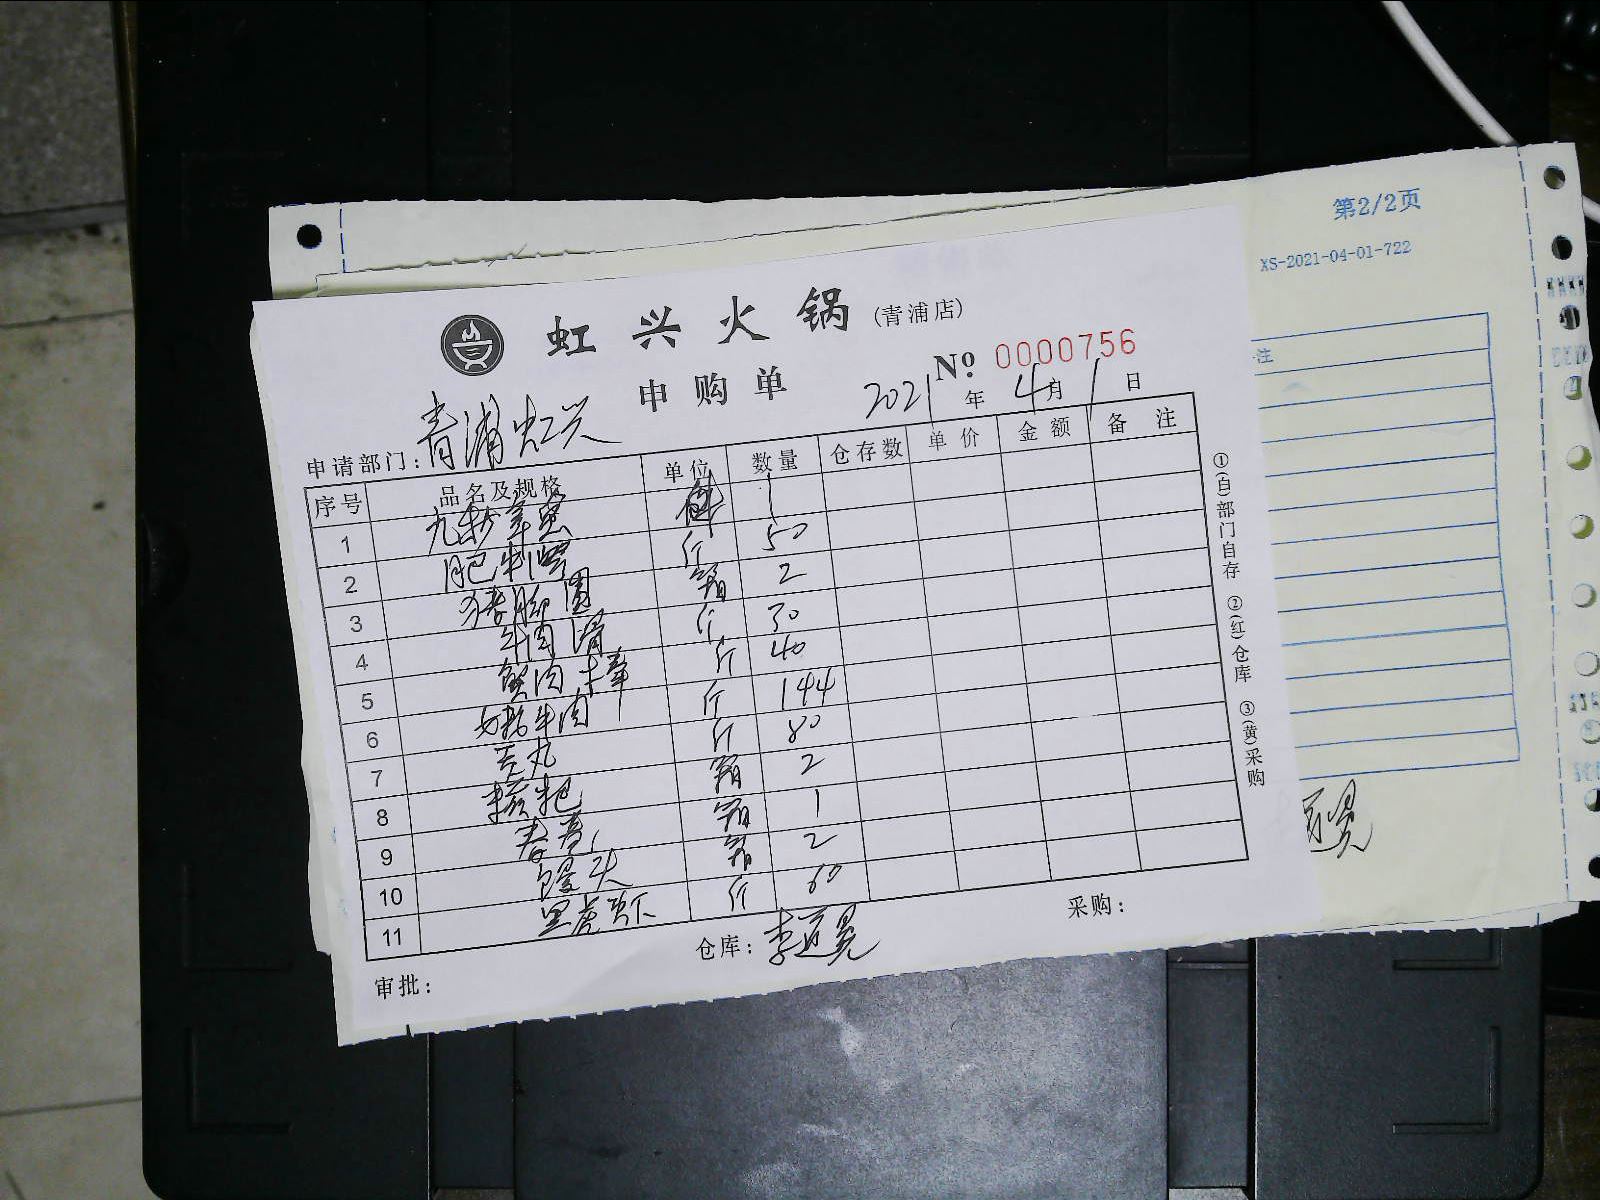 第2/2页
XS-2021-04-01-722
虹兴火锅(青浦店)
申购单
№ 0000756
2021年4月1日
申请部门:青浦虹兴
序号 品名及规格 单位 数量 仓存数 单价 金额 备注
1 1
2 肥牛 斤 50
3 猪脚圈 箱 2
4 牛肉滑 斤 30
5 蟹肉棒 斤 40
6 牛肉 斤 144
7 丸 斤 80
8 糍粑 箱 2
9 春卷 箱 1
10 馒头 箱 2
11 黑虎虾 斤 60
审批:
仓库:李
采购:
①(白)部门自存 ②(红)仓库 ③(黄)采购
注